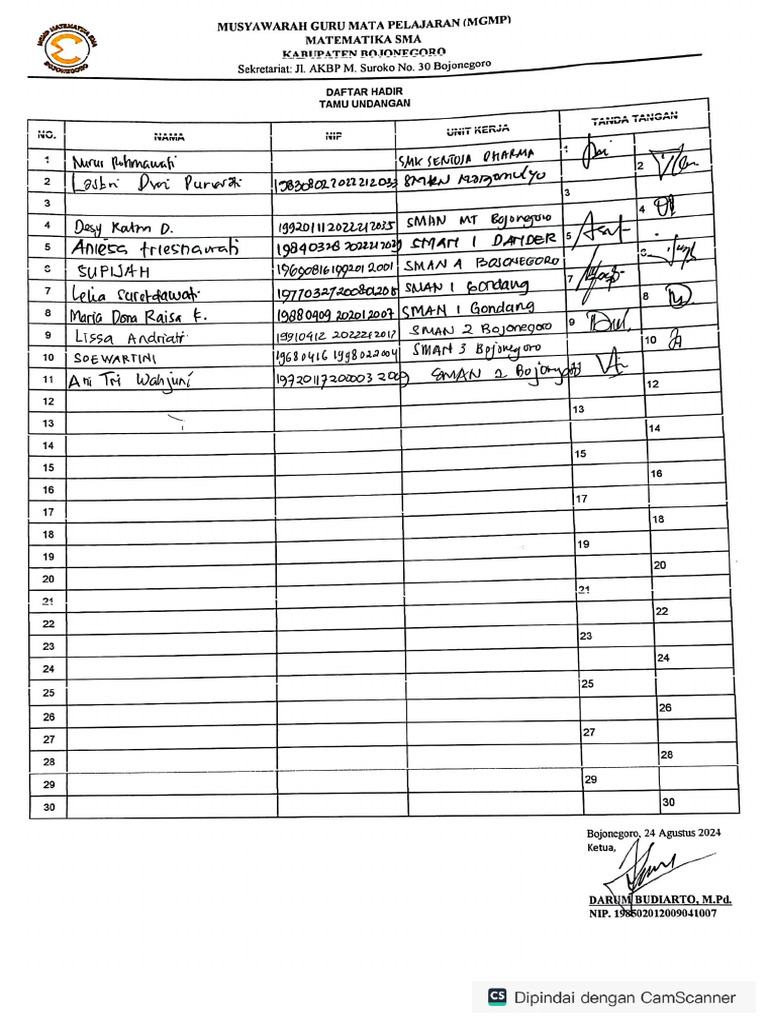 MGMP MATEMATIKA SMA
BOJONEGORO
MUSYAWARAH GURU MATA PELAJARAN (MGMP)
MATEMATIKA SMA
KABUPATEN BOJONEGORO
Sekretariat: Jl. AKBP M. Suroko No. 30 Bojonegoro
DAFTAR HADIR
TAMU UNDANGAN
NO. NAMA NIP UNIT KERJA TANDA TANGAN
1 Nurus Rohmawati SMK SENTOSA DHARMA 1
2 Lastri Dwi Purwati 198308022022212033 SMKN Margomulyo 2
3 3
4 Desy Katm D. 199201112022212035 SMAN MT Bojonegoro 4
5 Aniesa Friesnawati SMAN 1 DANDER 5
6 SUPIJAH 196908161992012001 SMAN 4 BOJONEGORO 6
7 Lelia 197703272008012015 SMAN 1 Gondang 7
8 Maria Dona Raisa F. 19880409 202012007 SMAN 1 Gondang 8
9 Lissa Andriati 19910412 2022212017 SMAN 2 Bojonegoro 9
10 SOEWARTINI 19680416 1998022004 SMAN 3 Bojonegoro 10
11 Ani Tri Wahjuni SMAN 2 Bojonegoro
12 12
13 13
14 14
15 15
16 16
17 17
18 18
19 19
20 20
21 21
22 22
23 23
24 24
25 25
26 26
27 27
28 28
29 29
30 30
Bojonegoro, 24 Agustus 2024
Ketua,
DARUM BUDIARTO, M.Pd.
NIP. 198502012009041007
CS Dipindai dengan CamScanner